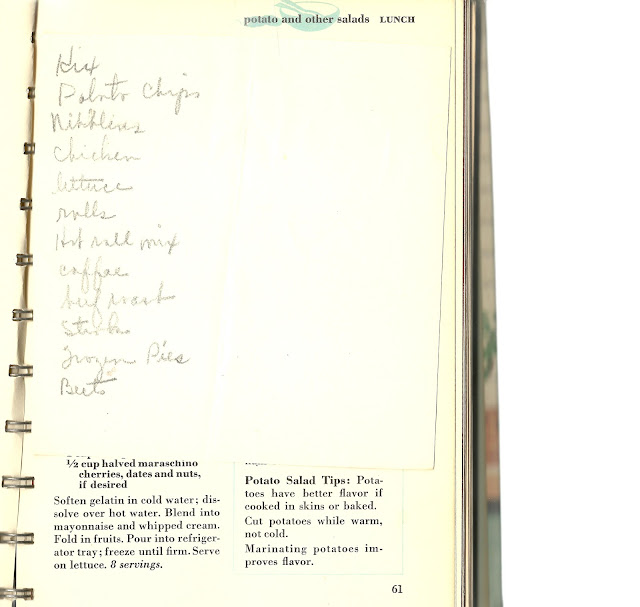 potato and other salads LUNCH
Kix
Potato Chips
Nibblins
Chicken
lettuce
rolls
Hot roll mix
coffee
beef roast
Steaks
Frozen Pies
Beets
1/2 cup halved maraschino
cherries, dates and nuts,
if desired
Soften gelatin in cold water; dis-
solve over hot water. Blend into
mayonnaise and whipped cream.
Fold in fruits. Pour into refriger-
ator tray; freeze until firm. Serve
on lettuce. 8 servings.
Potato Salad Tips: Pota-
toes have better flavor if
cooked in skins or baked.
Cut potatoes while warm,
not cold.
Marinating potatoes im-
proves flavor.
61